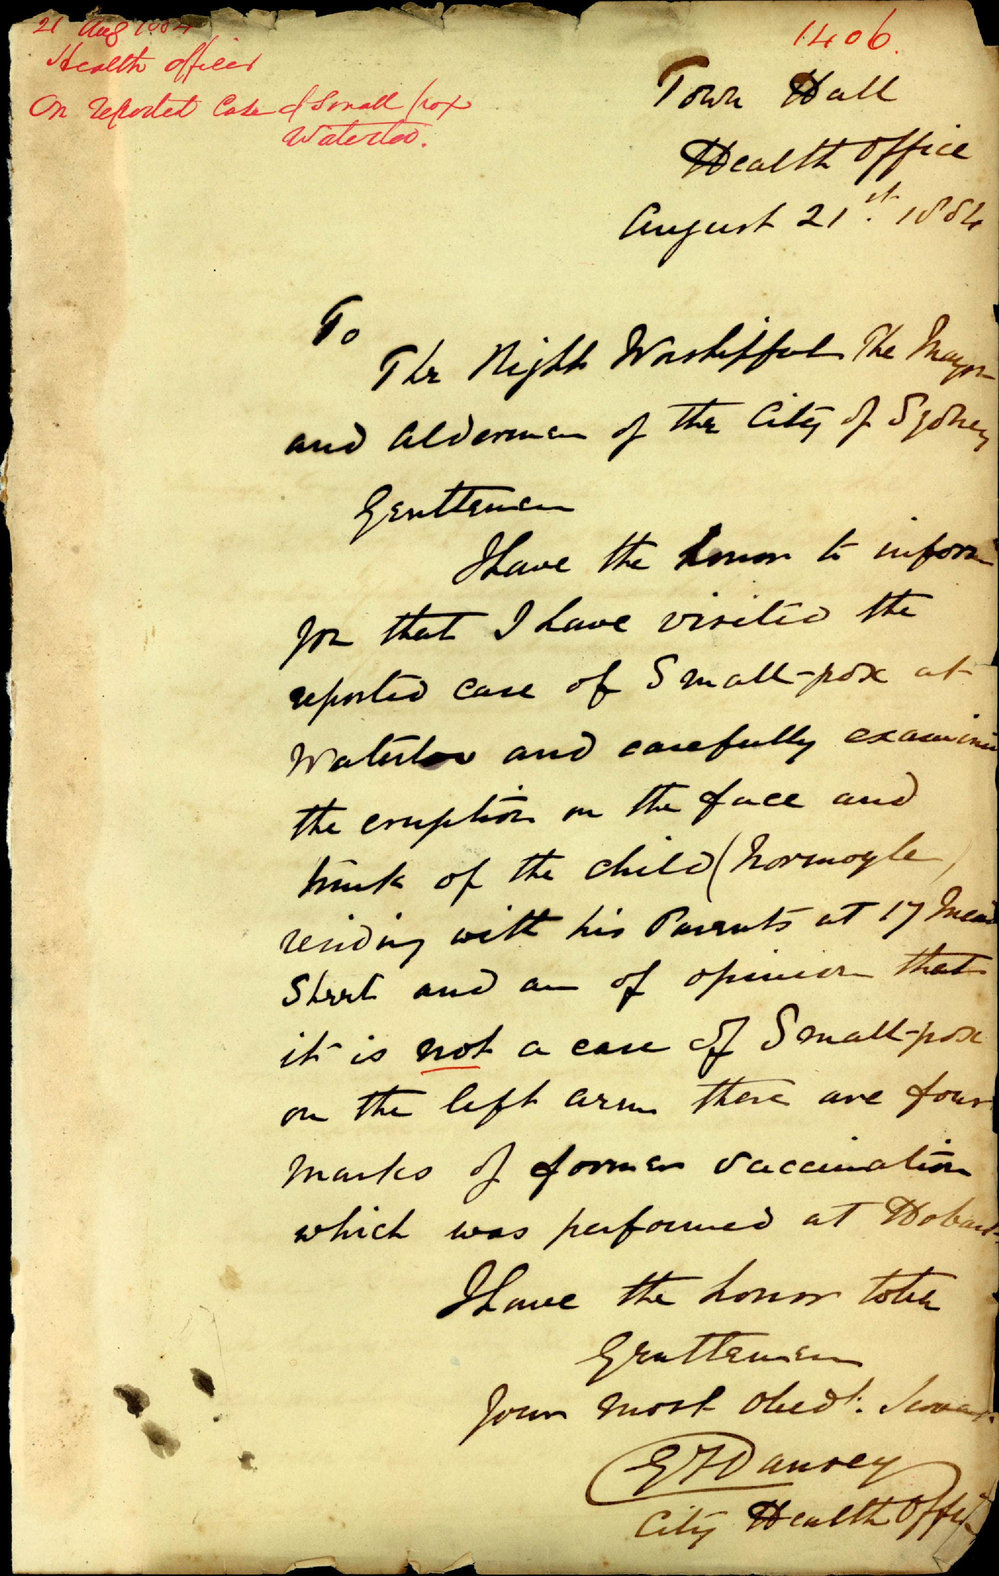 21 Aug 1884
Health officer
On reported Case of Small pox
Waterloo.
1406.
Town Hall
Health Office
August 21st. 1884
To
The Right Worshipful The Mayor
and Aldermen of the City of Sydney
Gentlemen
I have the honor to inform
you that I have visited the
reported case of Small-pox at
Waterloo and carefully examined
the eruption on the face and
trunk of the child (Normoyle)
residing with his Parents at 17 Mead
Street and am of opinion that
it is not a case of Small-pox
on the left arm there are four
marks of former vaccination
which was performed at Hobart
I have the honor to be
Gentlemen
Your most Obedt. Servant
City Health Officer